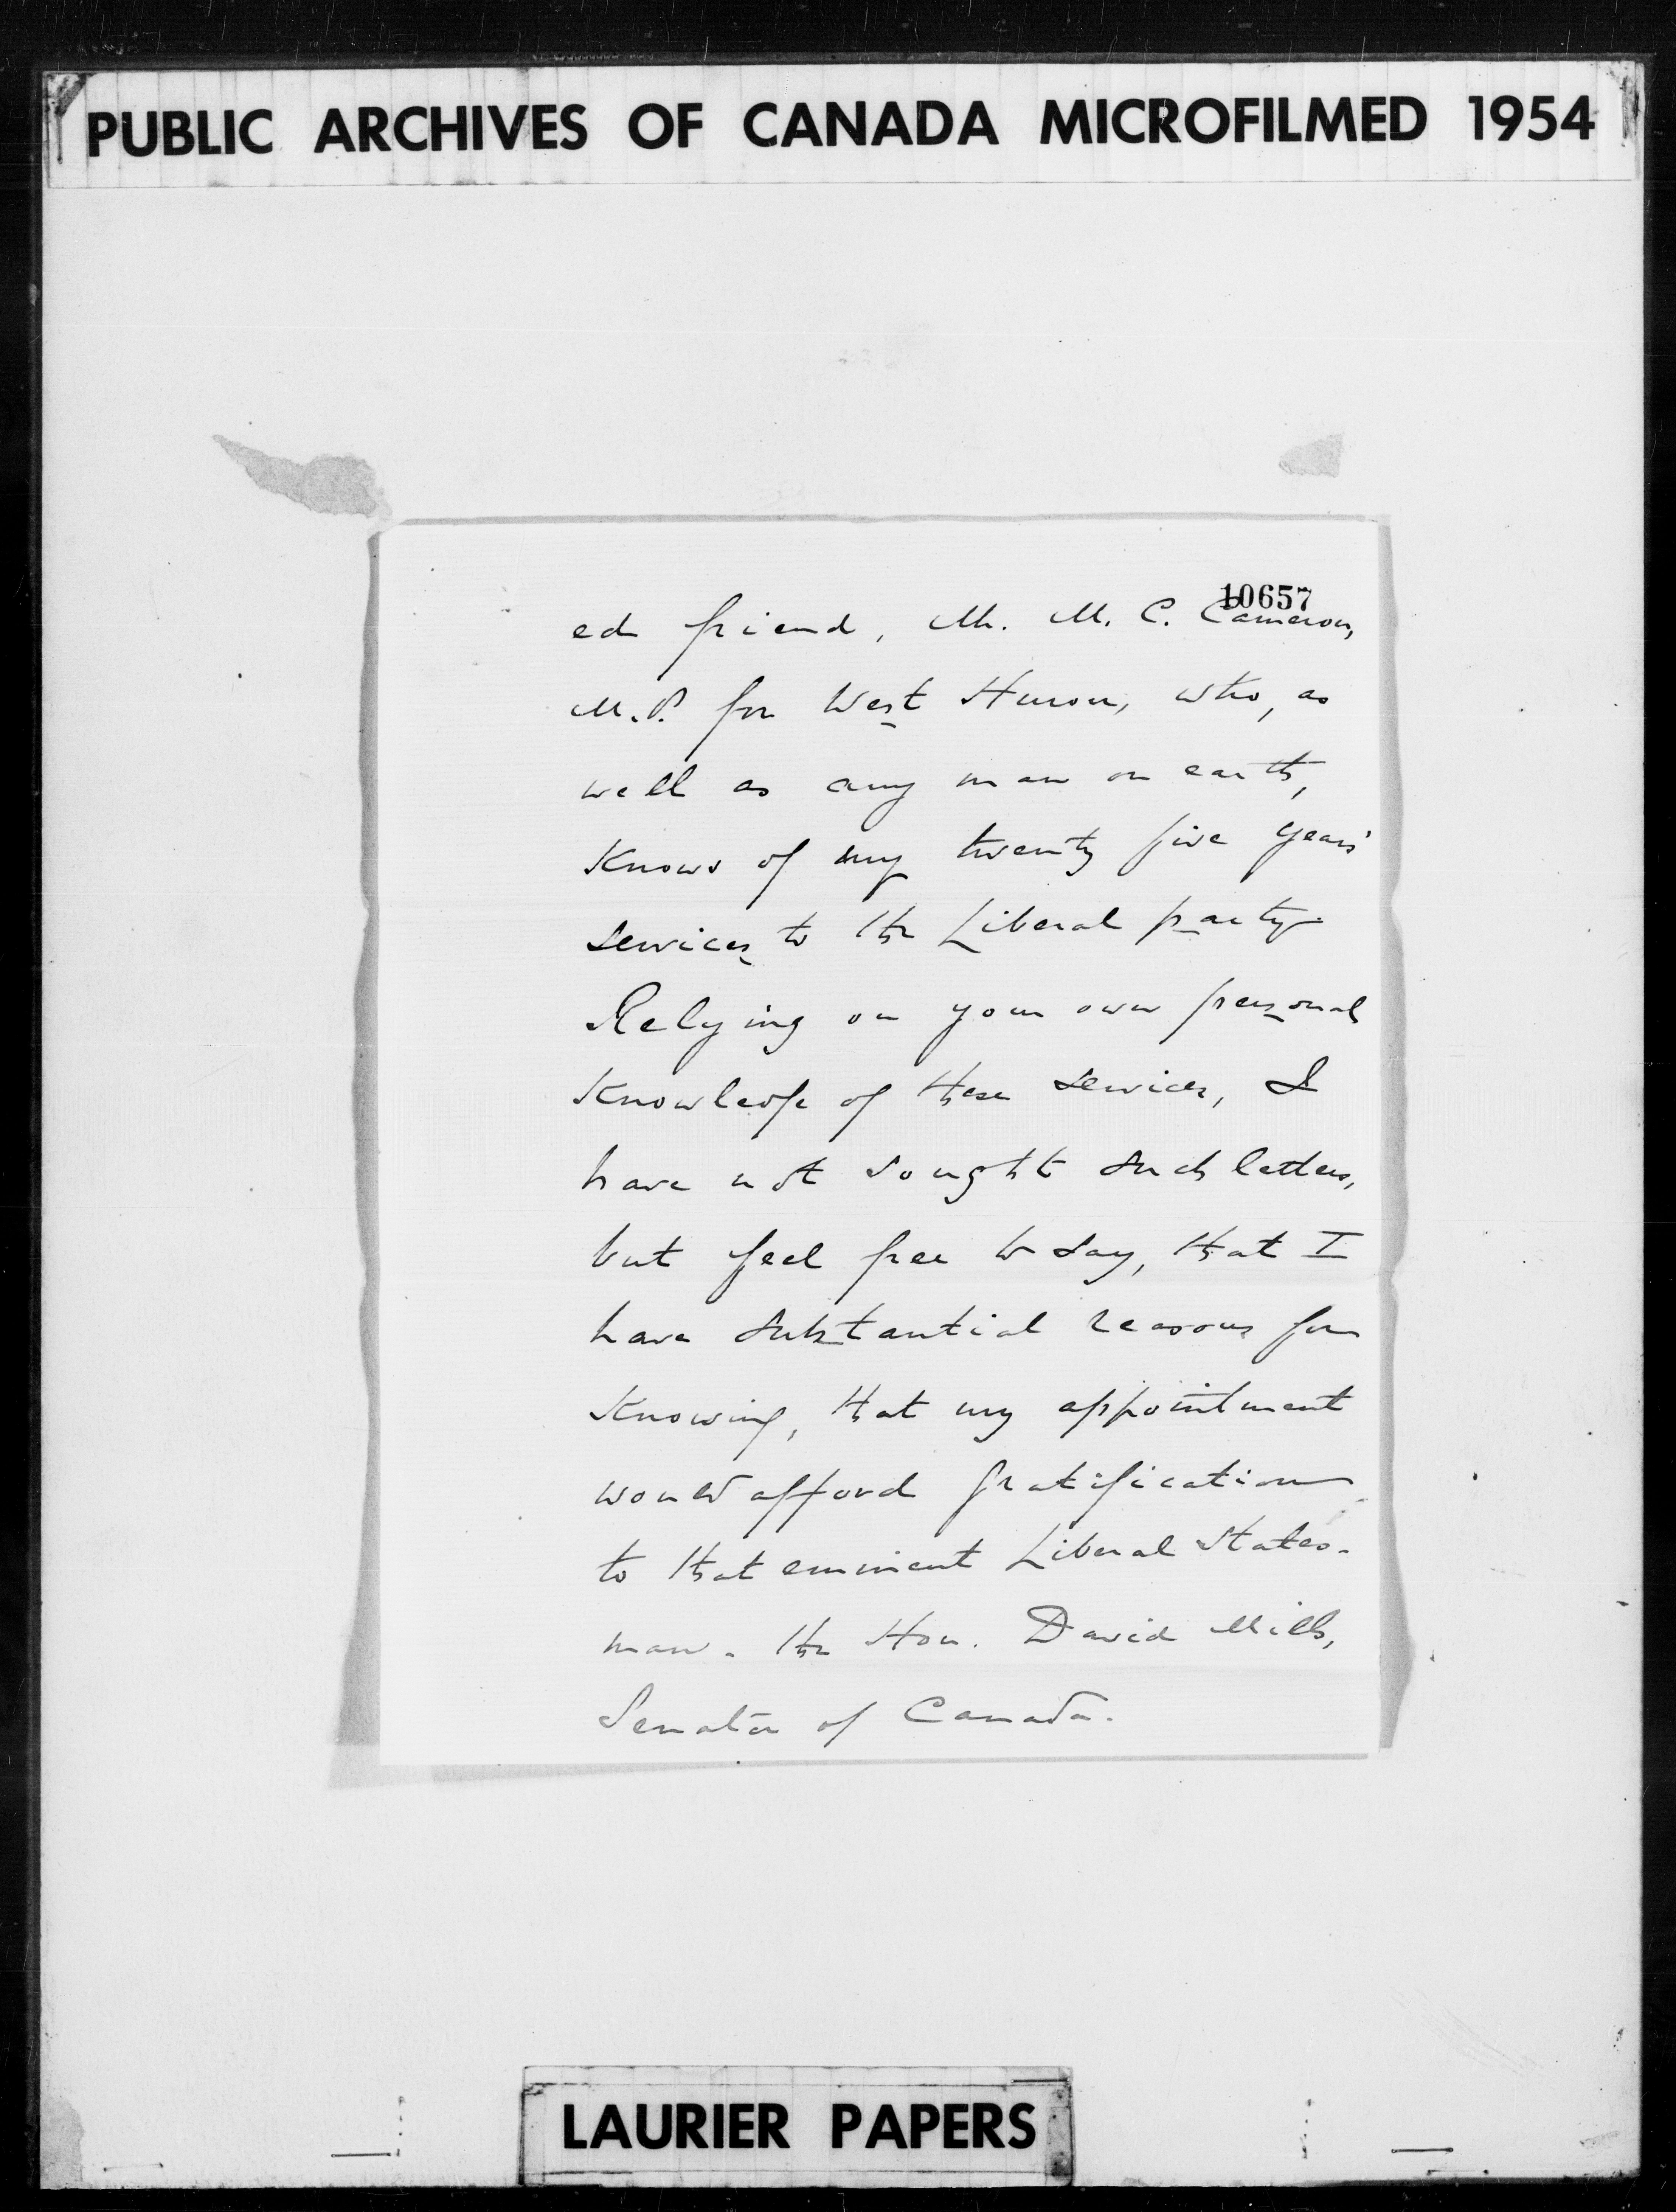 PUBLIC ARCHIVES OF CANADA MICROFILMED 1954
10657
ed friend, Mr. M. C. Cameron,
M.P. for West Huron, who, as
well as any man on earth,
Knows of my twenty five years'
services to the Liberal party.
Relying on your own personal
Knowledge of these services, I
have not sought such letters,
but feel free to say, that I
have substantial reasons for
Knowing, that my appointment
would afford gratification
to that eminent Liberal States-
man - the Hon. David Mills,
Senator of Canada.
LAURIER PAPERS